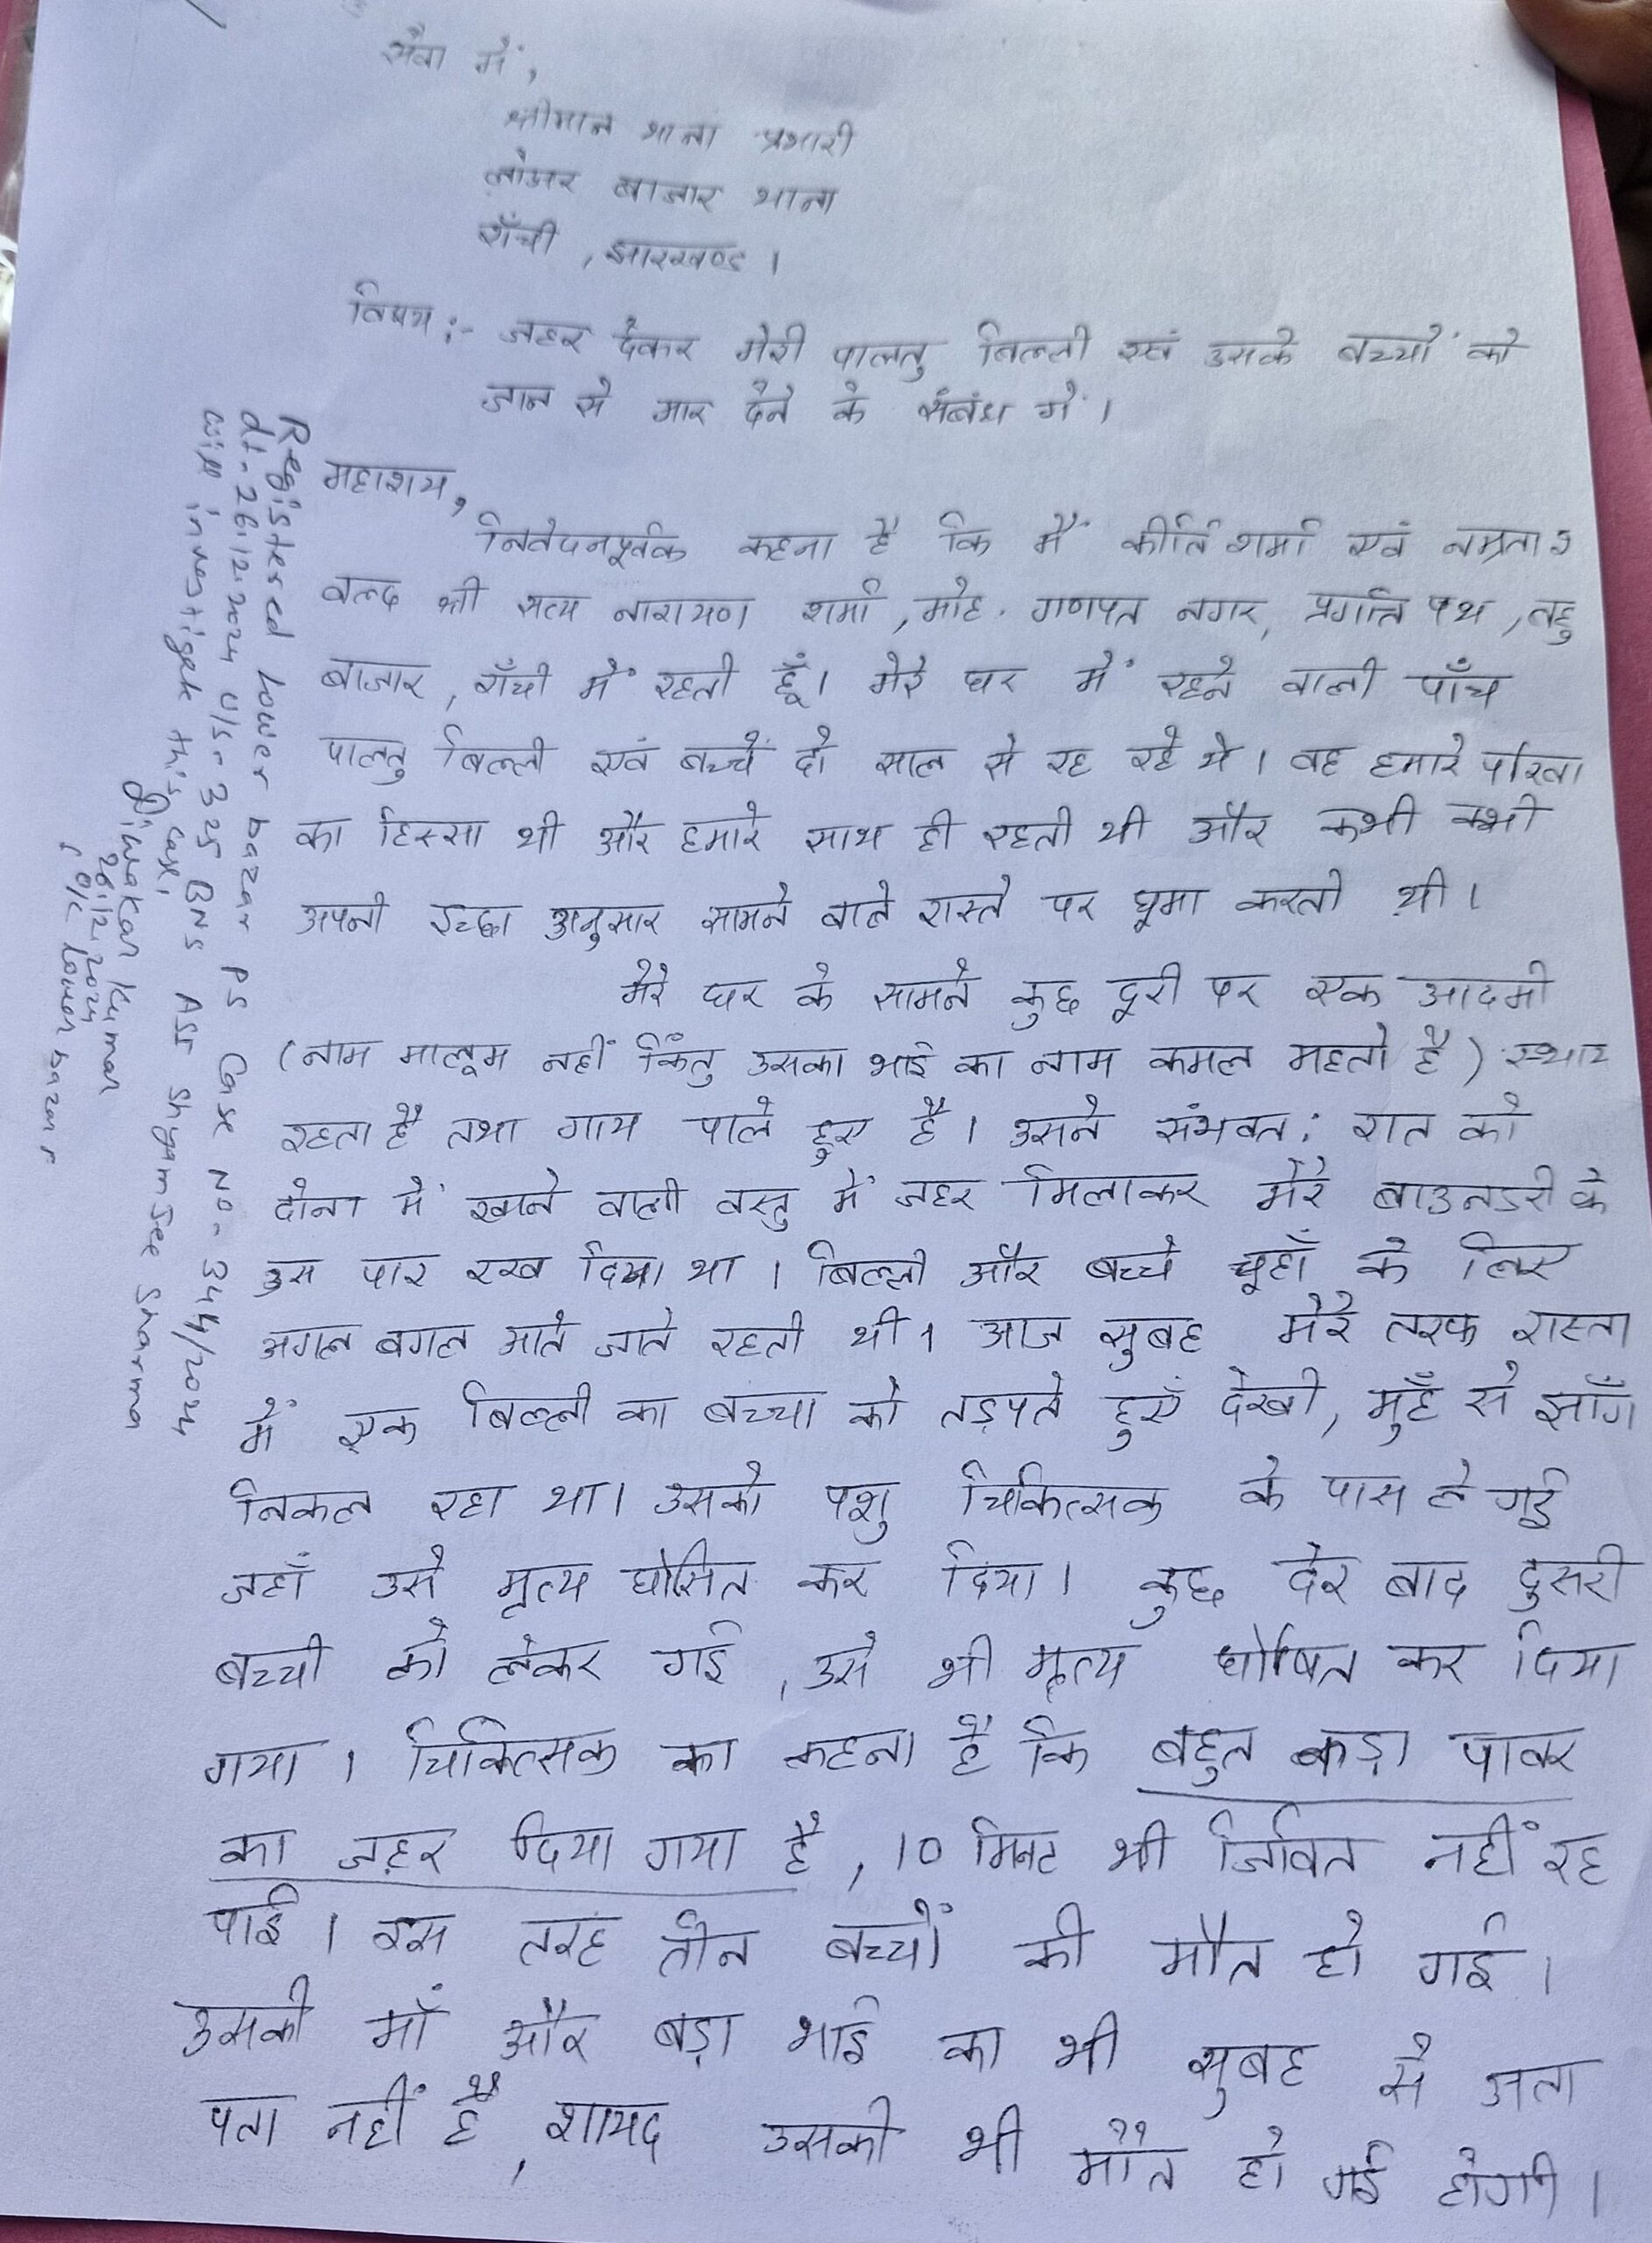 सेवा में,
श्रीमान थाना प्रभारी
लोअर बाजार थाना
राँची, झारखण्ड।
विषय:- जहर देकर मेरी पालतु बिल्ली एवं उसके बच्चों को
जान से मार देने के संबंध में।
महाशय,
निवेदनपूर्वक कहना है कि मैं कीर्ति शर्मा एवं नम्रता
वल्द श्री सत्य नारायण शर्मा, मोह. गणपत नगर, प्रगति पथ, बहु
बाजार, राँची में रहती हूँ। मेरे घर में रहने वाली पाँच
पालतु बिल्ली एवं बच्चें दो साल से रह रहे थे। वह हमारे परिवा
का हिस्सा थी और हमारे साथ ही रहती थी और कभी कभी
अपनी इच्छा अनुसार सामने वाले रास्ते पर घूमा करती थी।
मेरे घर के सामने कुछ दूरी पर एक आदमी
(नाम मालूम नहीं किंतु उसका भाई का नाम कमल महतो है)
रहता है तथा गाय पाले हुए है। उसने संभवत: रात को
दोना में खाने वाली वस्तु में जहर मिलाकर मेरे बाउनडरी के
उस पार रख दिया था। बिल्ली और बच्चे चूहाँ के लिए
अगल बगल आते जाते रहती थी। आज सुबह मेरे तरफ रास्ता
में एक बिल्ली का बच्चा को तड़पते हुएँ देखी, मुहँ से झाँग
निकल रहा था। उसको पशु चिकित्सक के पास ले गई
जहाँ उसे मृत्य घोसित कर दिया। कुछ देर बाद दुसरी
बच्ची को लेकर गई, उसे भी मृत्य घोषित कर दिया
गया। चिकित्सक का कहना है कि बहुत कड़ा पावर
का ज़हर दिया गया है, 10 मिनट भी जिवित नहीं रह
पाई। इस तरह तीन बच्चों की मौत हो गई।
उसकी माँ और बड़ा भाई का भी सुबह से अता
पता नहीं है, शायद उसकी भी मौत हो गई होगी।
Registered lower bazar PS Case No- 344/2024
dt- 26.12.2024 U/S- 325 BNS ASI Shyamjee Sharma
will investigate this case.
Diwakar Kumar
26.12.2024
O/C lower bazar